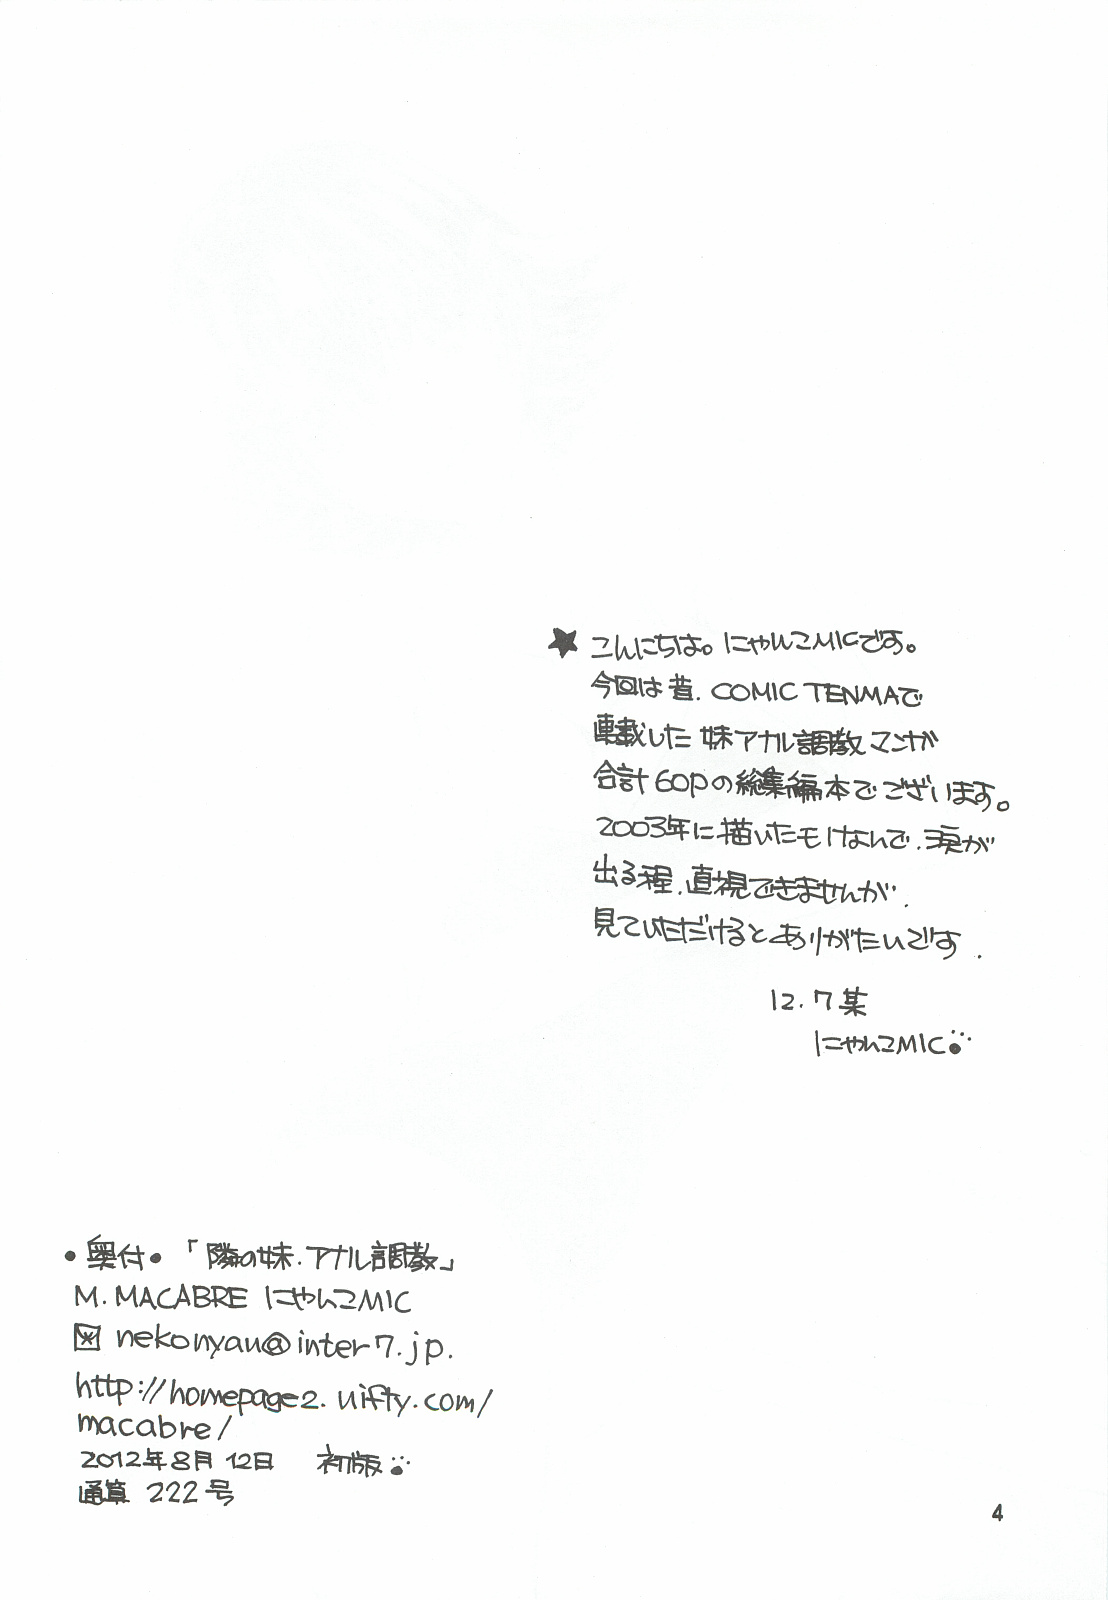 ★こんにちは。にゃんこMICです。
今回は昔、COMIC TENMAで
連載した妹アナル調教マンガ
合計60pの総集編本でございます。
2003年に描いたモけなんで、涙が
出る程、直視できませんが、
見ていただけるとありがたいです.
12.7某
にゃんこMIC
•奥付•「隣の妹・アナル調教」
M. MACABRE にゃんこMIC
nekonyan@inter7.jp.
http://homepage2.nifty.com/
macabre/
2012年8月12日 初版
通算222号
4